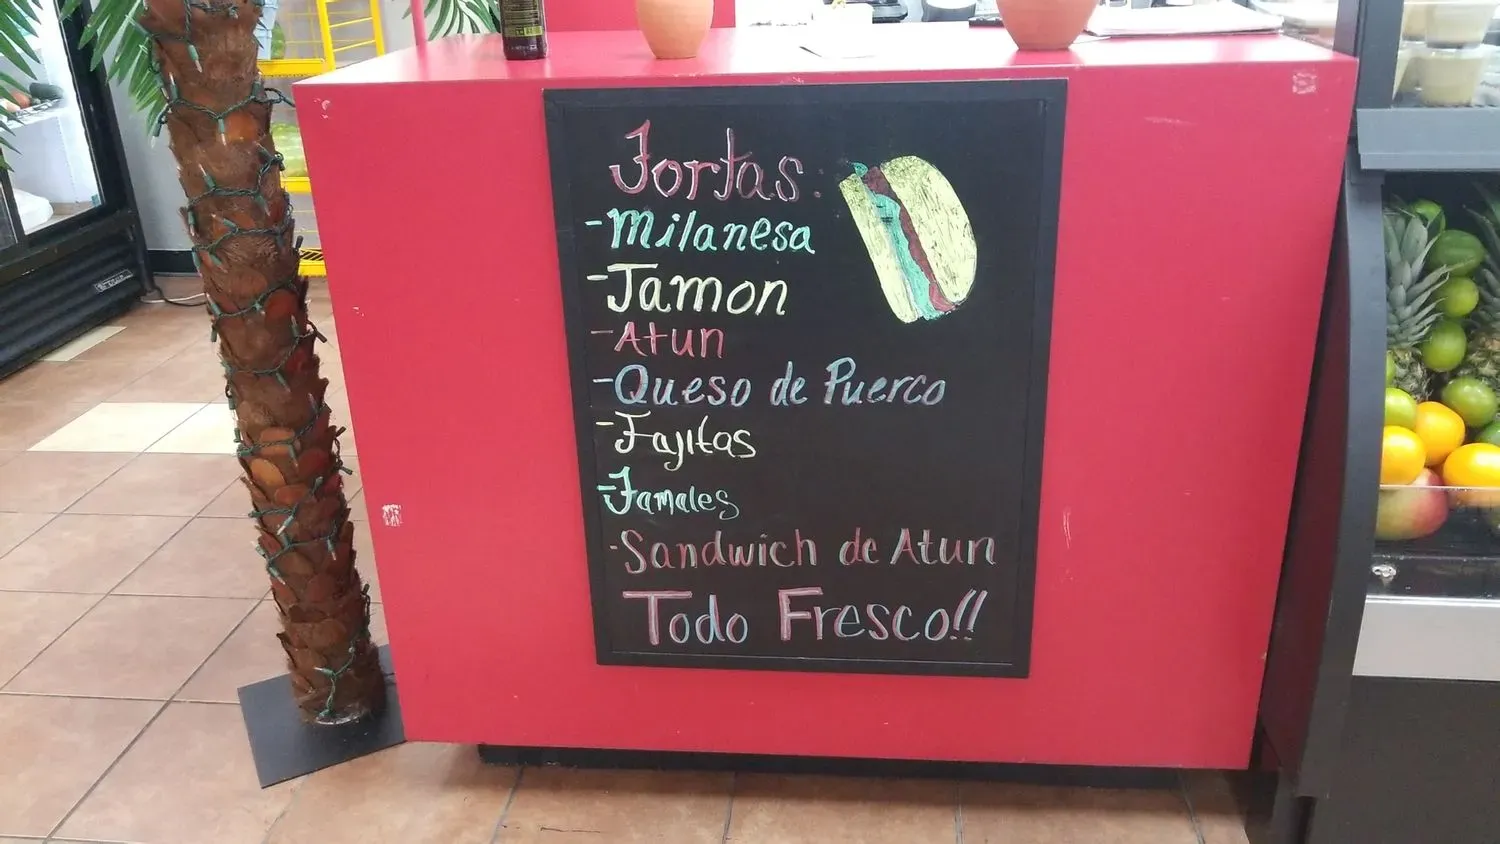 Tortas:
-Milanesa
-Jamon
-Atun
-Queso de Puerco
-Fajitas
-Tamales
-Sandwich de Atun
Todo Fresco!!